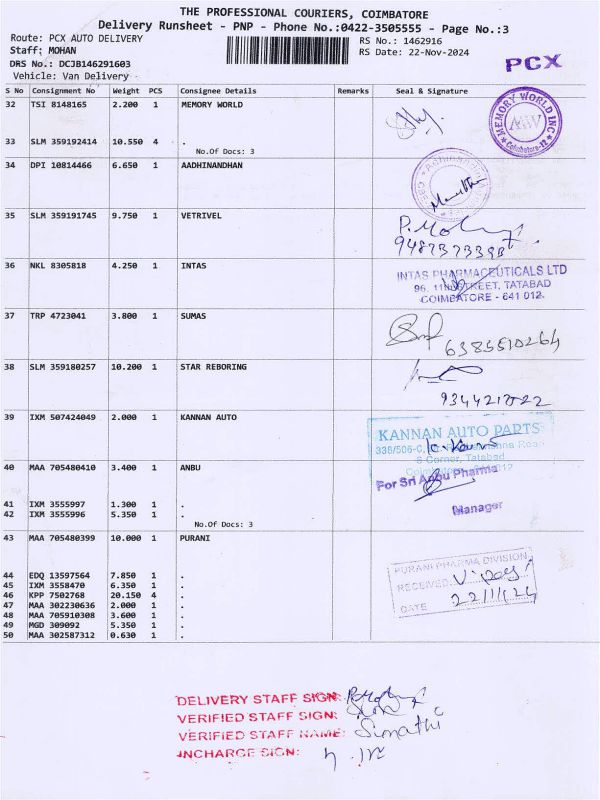 THE PROFESSIONAL COURIERS, COIMBATORE
Delivery Runsheet - PNP - Phone No.:0422-3505555 - Page No.:3
Route: PCX AUTO DELIVERY
RS No.: 1462916
Staff: MOHAN
RS Date: 22-Nov-2024
PCX
DRS No.: DCJB146291603
Vehicle: Van Delivery
S No Consignment No Weight PCS Consignee Details Remarks Seal & Signature
32 TSI 8148165 2.200 1 MEMORY WORLD
MEMORY WORLD INC
Coimbatore-12
33 SLM 359192414 10.550 4 .
No.Of Docs: 3
34 DPI 10814466 6.650 1 AADHINANDHAN
35 SLM 359191745 9.750 1 VETRIVEL
36 NKL 8305818 4.250 1 INTAS
INTAS PHARMACEUTICALS LTD
96, 11th STREET, TATABAD
COIMBATORE - 641 012.
37 TRP 4723041 3.800 1 SUMAS
6385510264
38 SLM 359180257 10.200 1 STAR REBORING
39 IXM 507424049 2.000 1 KANNAN AUTO
KANNAN AUTO PARTS
6 Corner, Tatabad
40 MAA 705480410 3.400 1 ANBU
For Sri Anbu Pharma
Manager
41 IXM 3555997 1.300 1 .
42 IXM 3555996 5.350 1 .
No.Of Docs: 3
43 MAA 705480399 10.000 1 PURANI
PURANI PHARMA DIVISION
RECEIVED
DATE 22/11/24
44 EDQ 13597564 7.850 1 .
45 IXM 3558470 6.350 1 .
46 KPP 7502768 20.150 4 .
47 MAA 302230636 2.000 1 .
48 MAA 705910308 3.600 1 .
49 MGD 309092 5.350 1 .
50 MAA 302587312 0.630 1 .
DELIVERY STAFF SIGN:
VERIFIED STAFF SIGN:
VERIFIED STAFF NAME: Sumathi
INCHARGE SIGN: